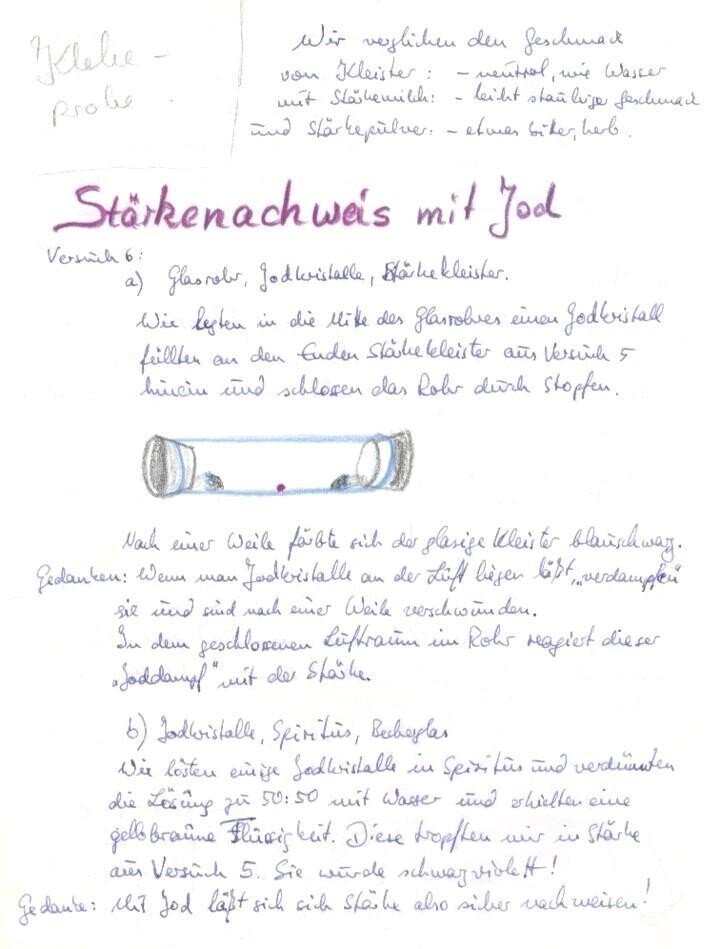 Klebe-
probe
Wir verglichen den Geschmack
von Kleister: - neutral, wie Wasser
mit Stärkemilch: - leicht staubiger Geschmack
und Stärkepulver: - etwas bitter, herb.
Stärkenachweis mit Jod
Versuch 6:
a) Glasrohr, Jodkristalle, Stärkekleister.
Wir legten in die Mitte des Glasrohres einen Jodkristall
füllten an den Enden Stärkekleister aus Versuch 5
hinein und schlossen das Rohr durch Stopfen.
Nach einer Weile färbte sich der glasige Kleister blauschwarz.
Gedanken: Wenn man Jodkristalle an der Luft liegen läßt, „verdampfen"
sie und sind nach einer Weile verschwunden.
In dem geschlossenen Luftraum im Rohr reagiert dieser
„Joddampf" mit der Stärke.
b) Jodkristalle, Spiritus, Becherglas
Wir lösten einige Jodkristalle in Spiritus und verdünnten
die Lösung zu 50:50 mit Wasser und erhielten eine
gelbbraune Flüssigkeit. Diese tropften wir in Stärke
aus Versuch 5. Sie wurde schwarzviolett!
Gedanke: Mit Jod läßt sich sich Stärke also sicher nachweisen!